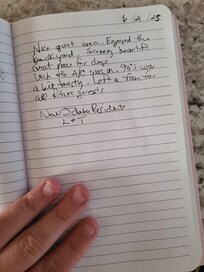 6/21/25
Nice quiet area. Enjoyed the
backyard. Scenery beautiful
Great place for dogs
Wish the A/C was on. 90's was
a bit toasty. Left a fan for
all future guests
New Idaho Residents
L + T